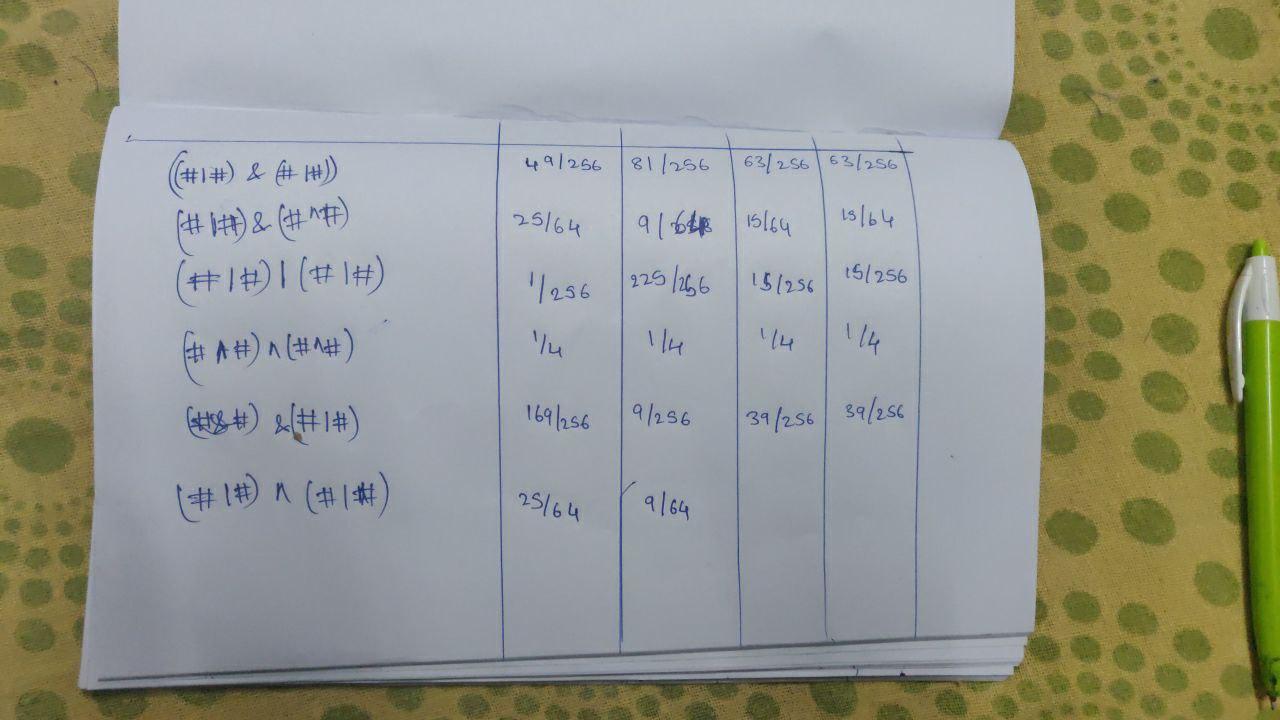 ((#|#) & (#|#)) 49/256 81/256 63/256 63/256
(#|#) & (#^#) 25/64 9/64 15/64 15/64
(#|#) | (#|#) 1/256 225/256 15/256 15/256
(#^#) ^ (#^#) 1/4 1/4 1/4 1/4
(#&#) & (#|#) 169/256 9/256 39/256 39/256
(#|#) ^ (#|#) 25/64 9/64